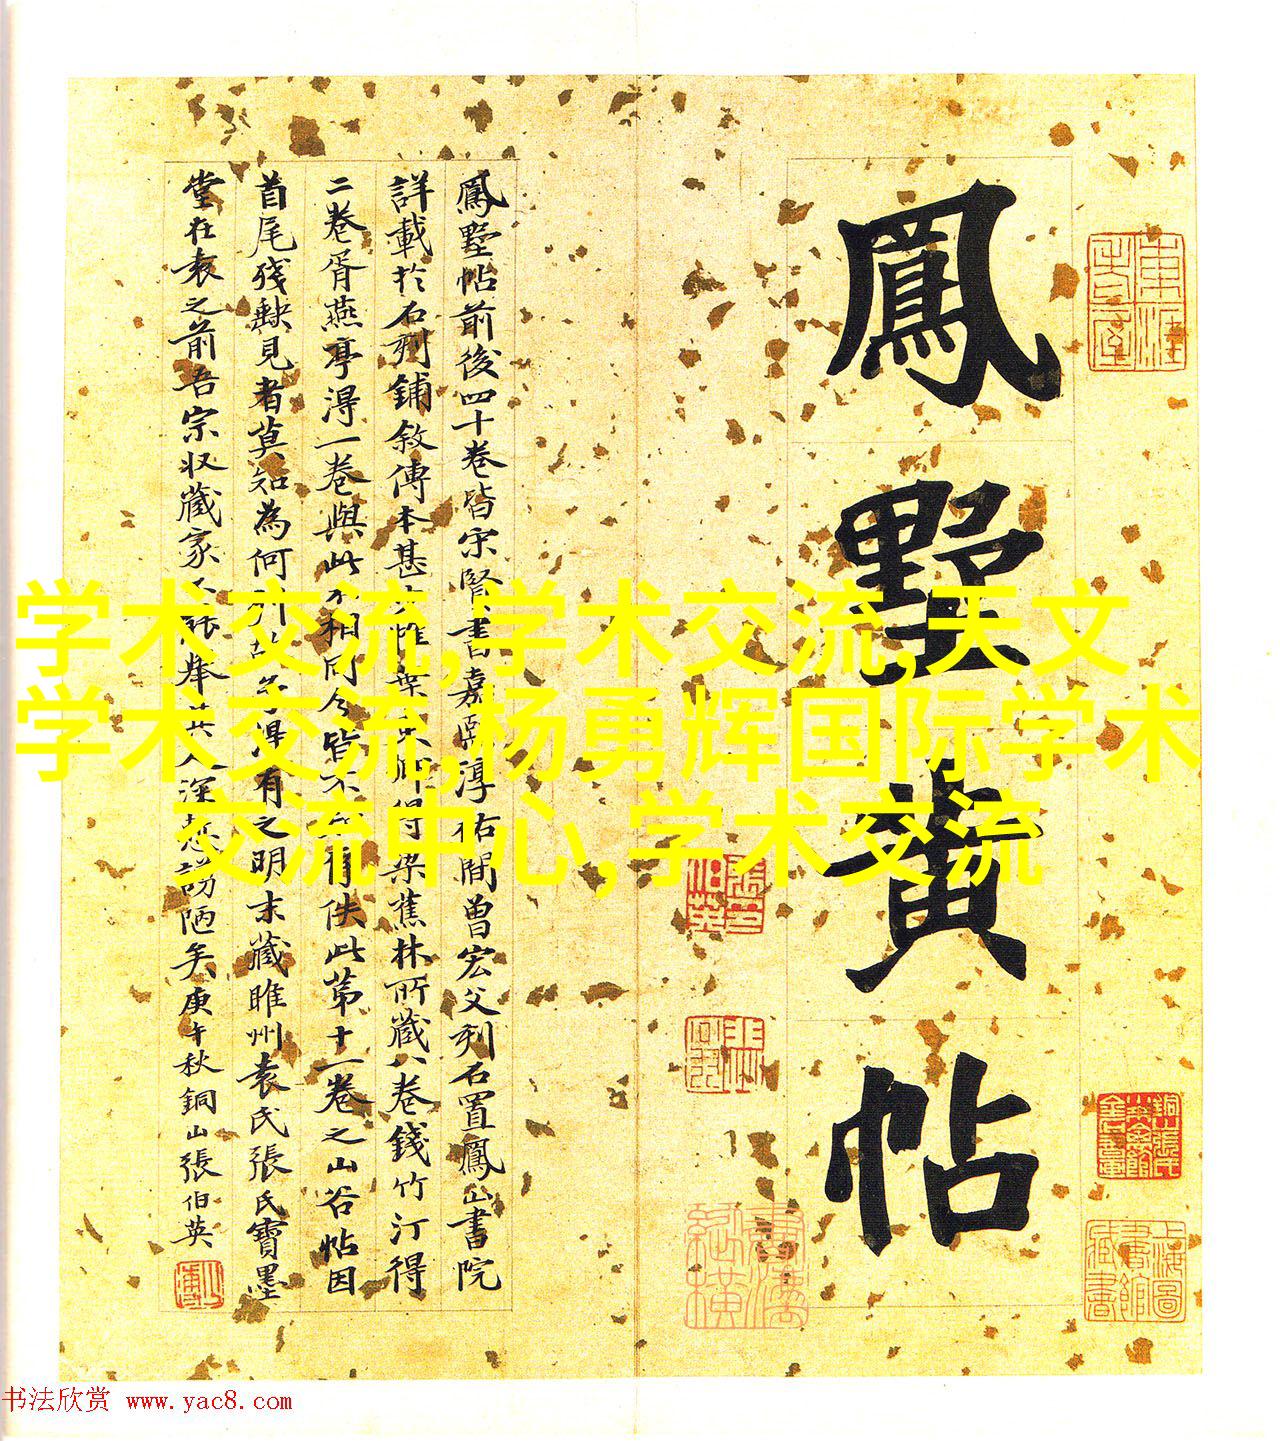 鳳墅黄帖
鳳墅帖前後四十卷皆宋賢書嘉熙淳祐間曾宏父刻石置鳳山書院
詳載於石刻鋪敘傳本甚
得梁蕉林所藏八卷錢竹汀得
二卷胥燕亭得一卷與此不相同今皆不
有佚此第十一卷之山谷帖因
首尾殘缺見者莫知為何刻
得有之明末藏睢州袁氏張氏寶墨
堂在袁之前吾宗收藏家
人深
謗陋矣庚午秋銅山張伯英
学术交流,学术交流,天文
学术交流,杨勇辉国际学术
交流中心,学术交流
上海圖書館藏書
书法欣赏 www.yac8.com